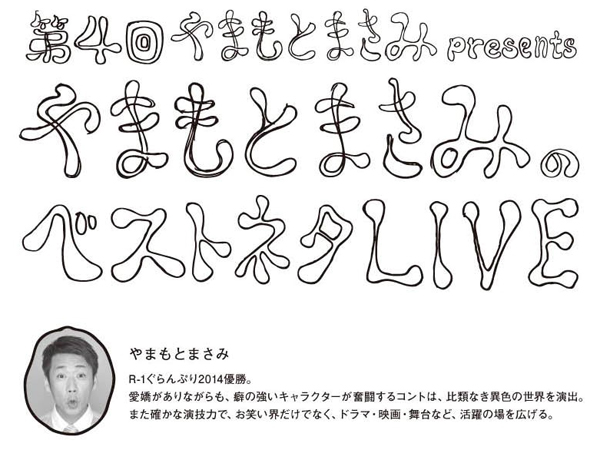 第4回 やまもとまさみ presents
やまもとまさみの
ベストネタLIVE
やまもとまさみ
R-1ぐらんぷり2014優勝。
愛嬌がありながらも、癖の強いキャラクターが奮闘するコントは、比類なき異色の世界を演出。
また確かな演技力で、お笑い界だけでなく、ドラマ・映画・舞台など、活躍の場を広げる。